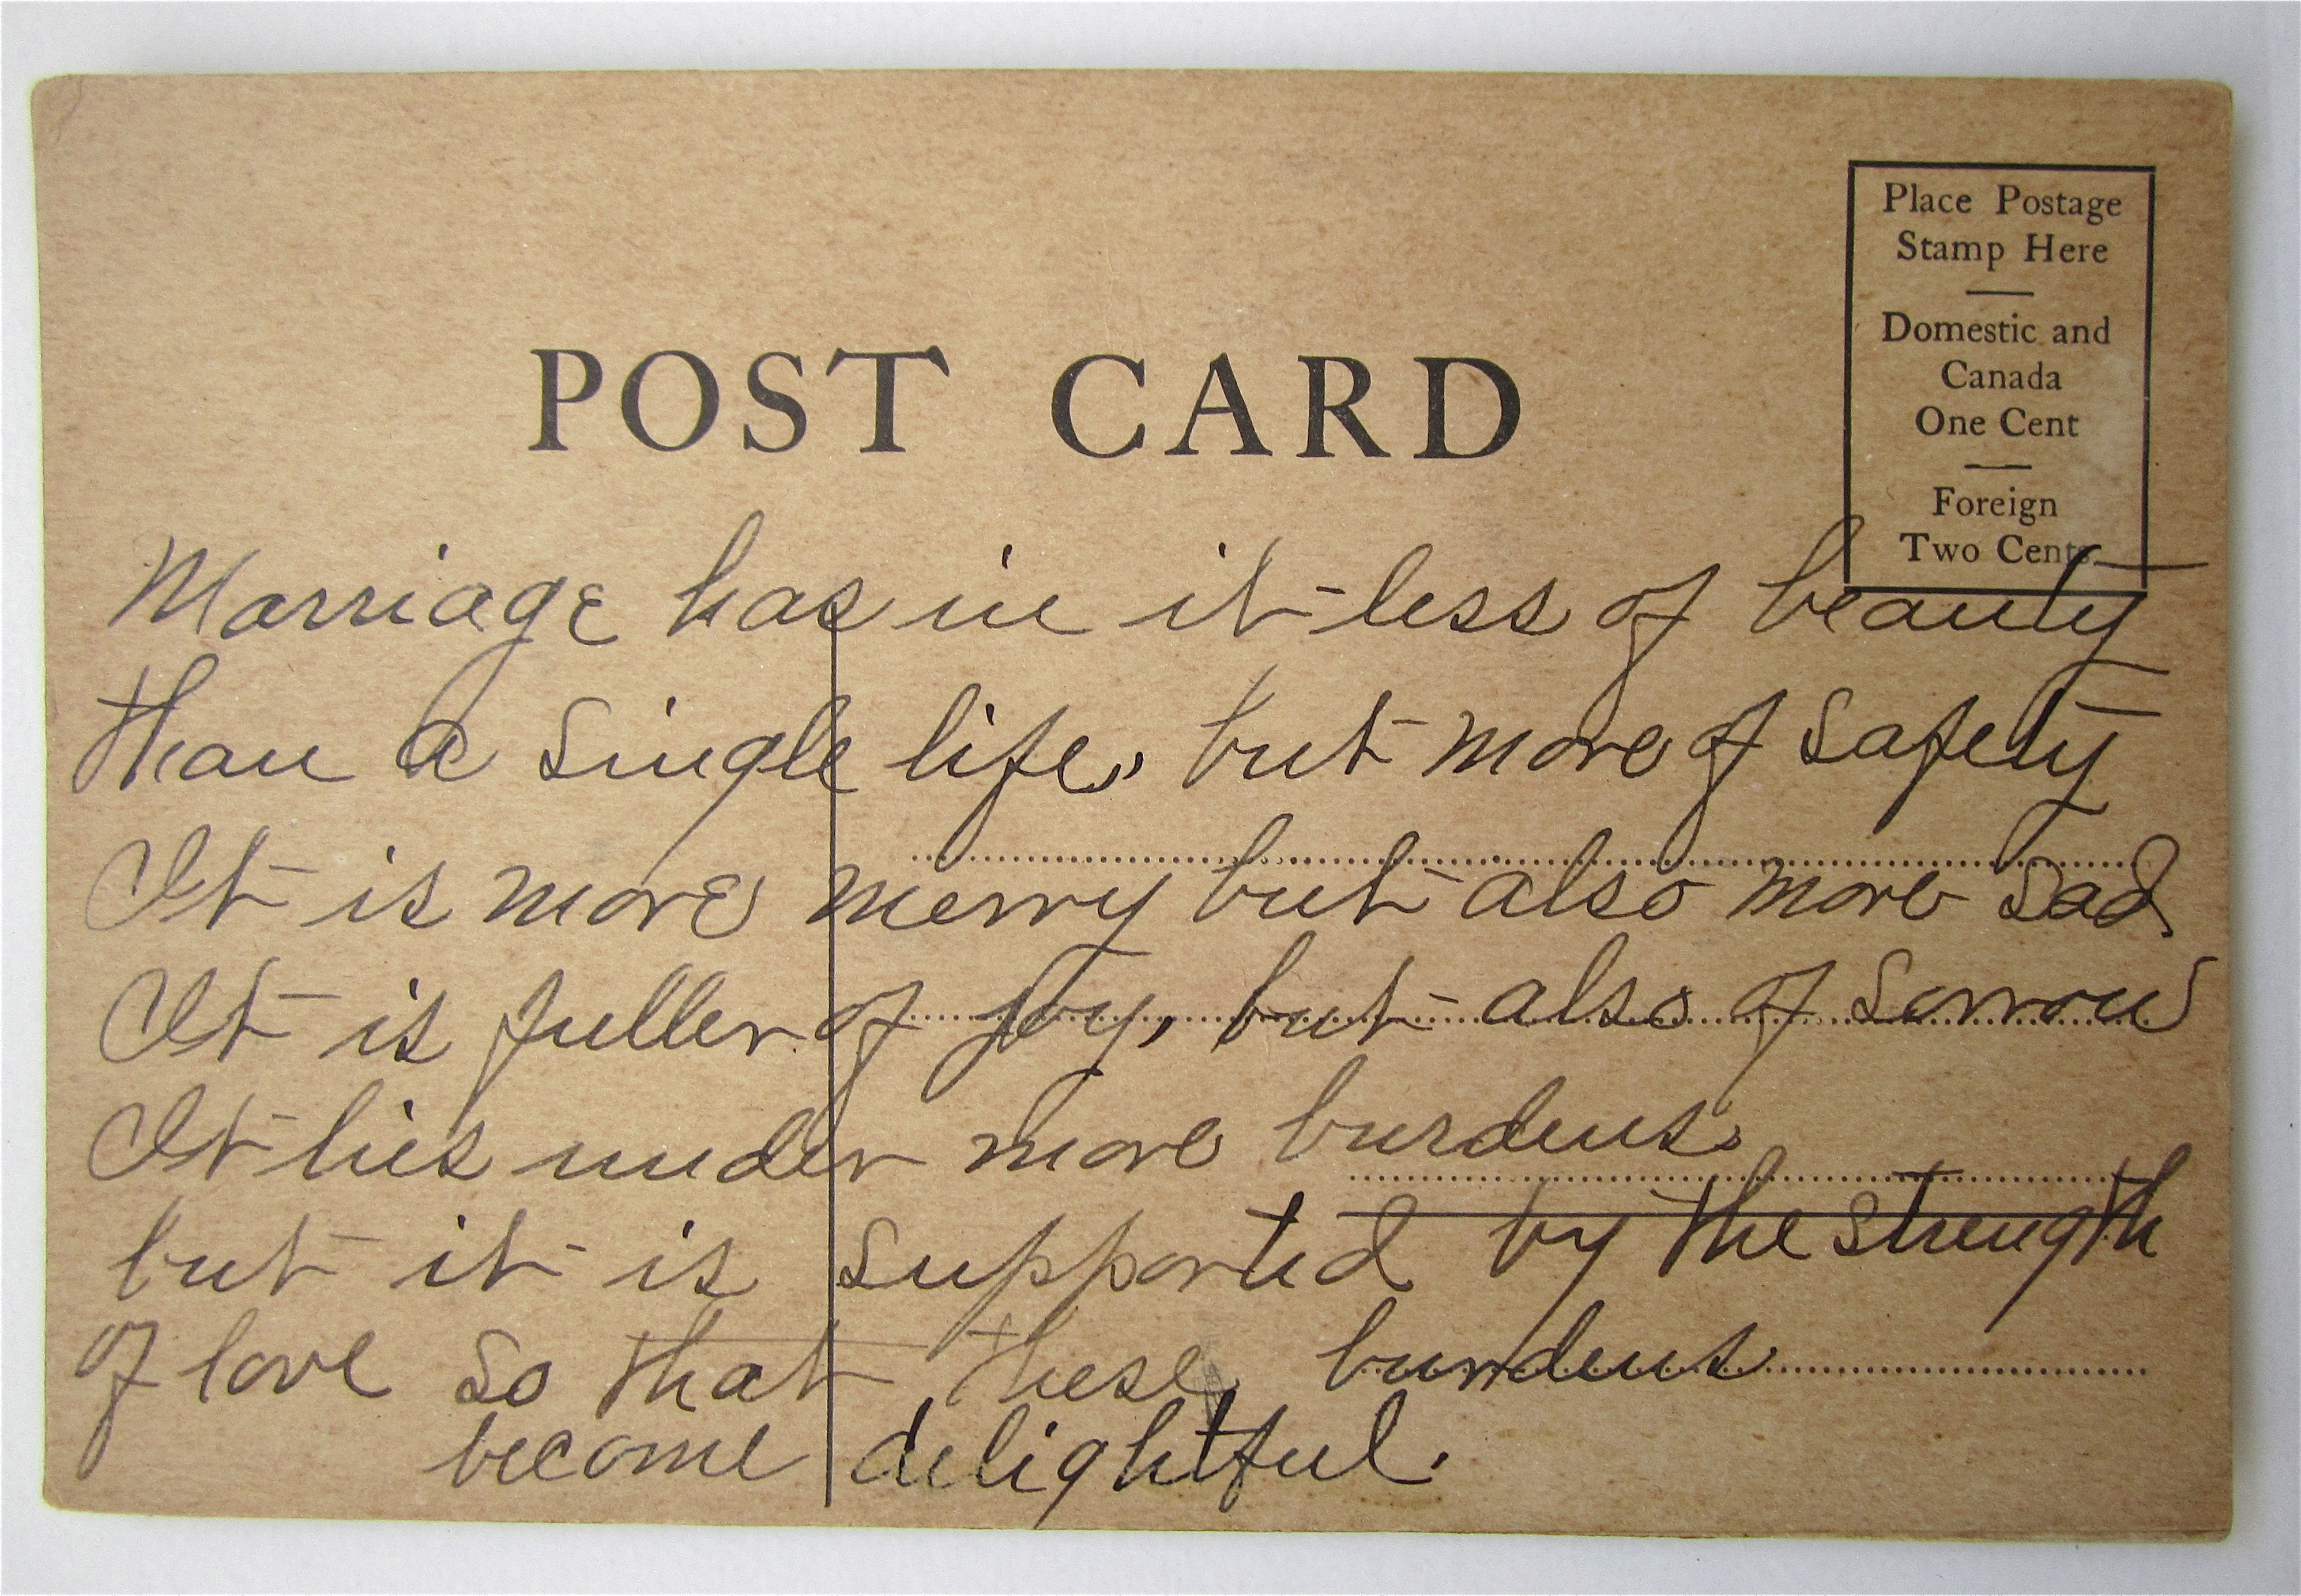 Place Postage
Stamp Here
Domestic and
Canada
One Cent
Foreign
Two Cents
POST CARD
Marriage has in it less of beauty
than a single life, but more of safety
It is more merry but also more sad
It is fuller of joy, but also of sorrow
It lies under more burdens.
but it is supported by the strength
of love so that these burdens
become delightful.